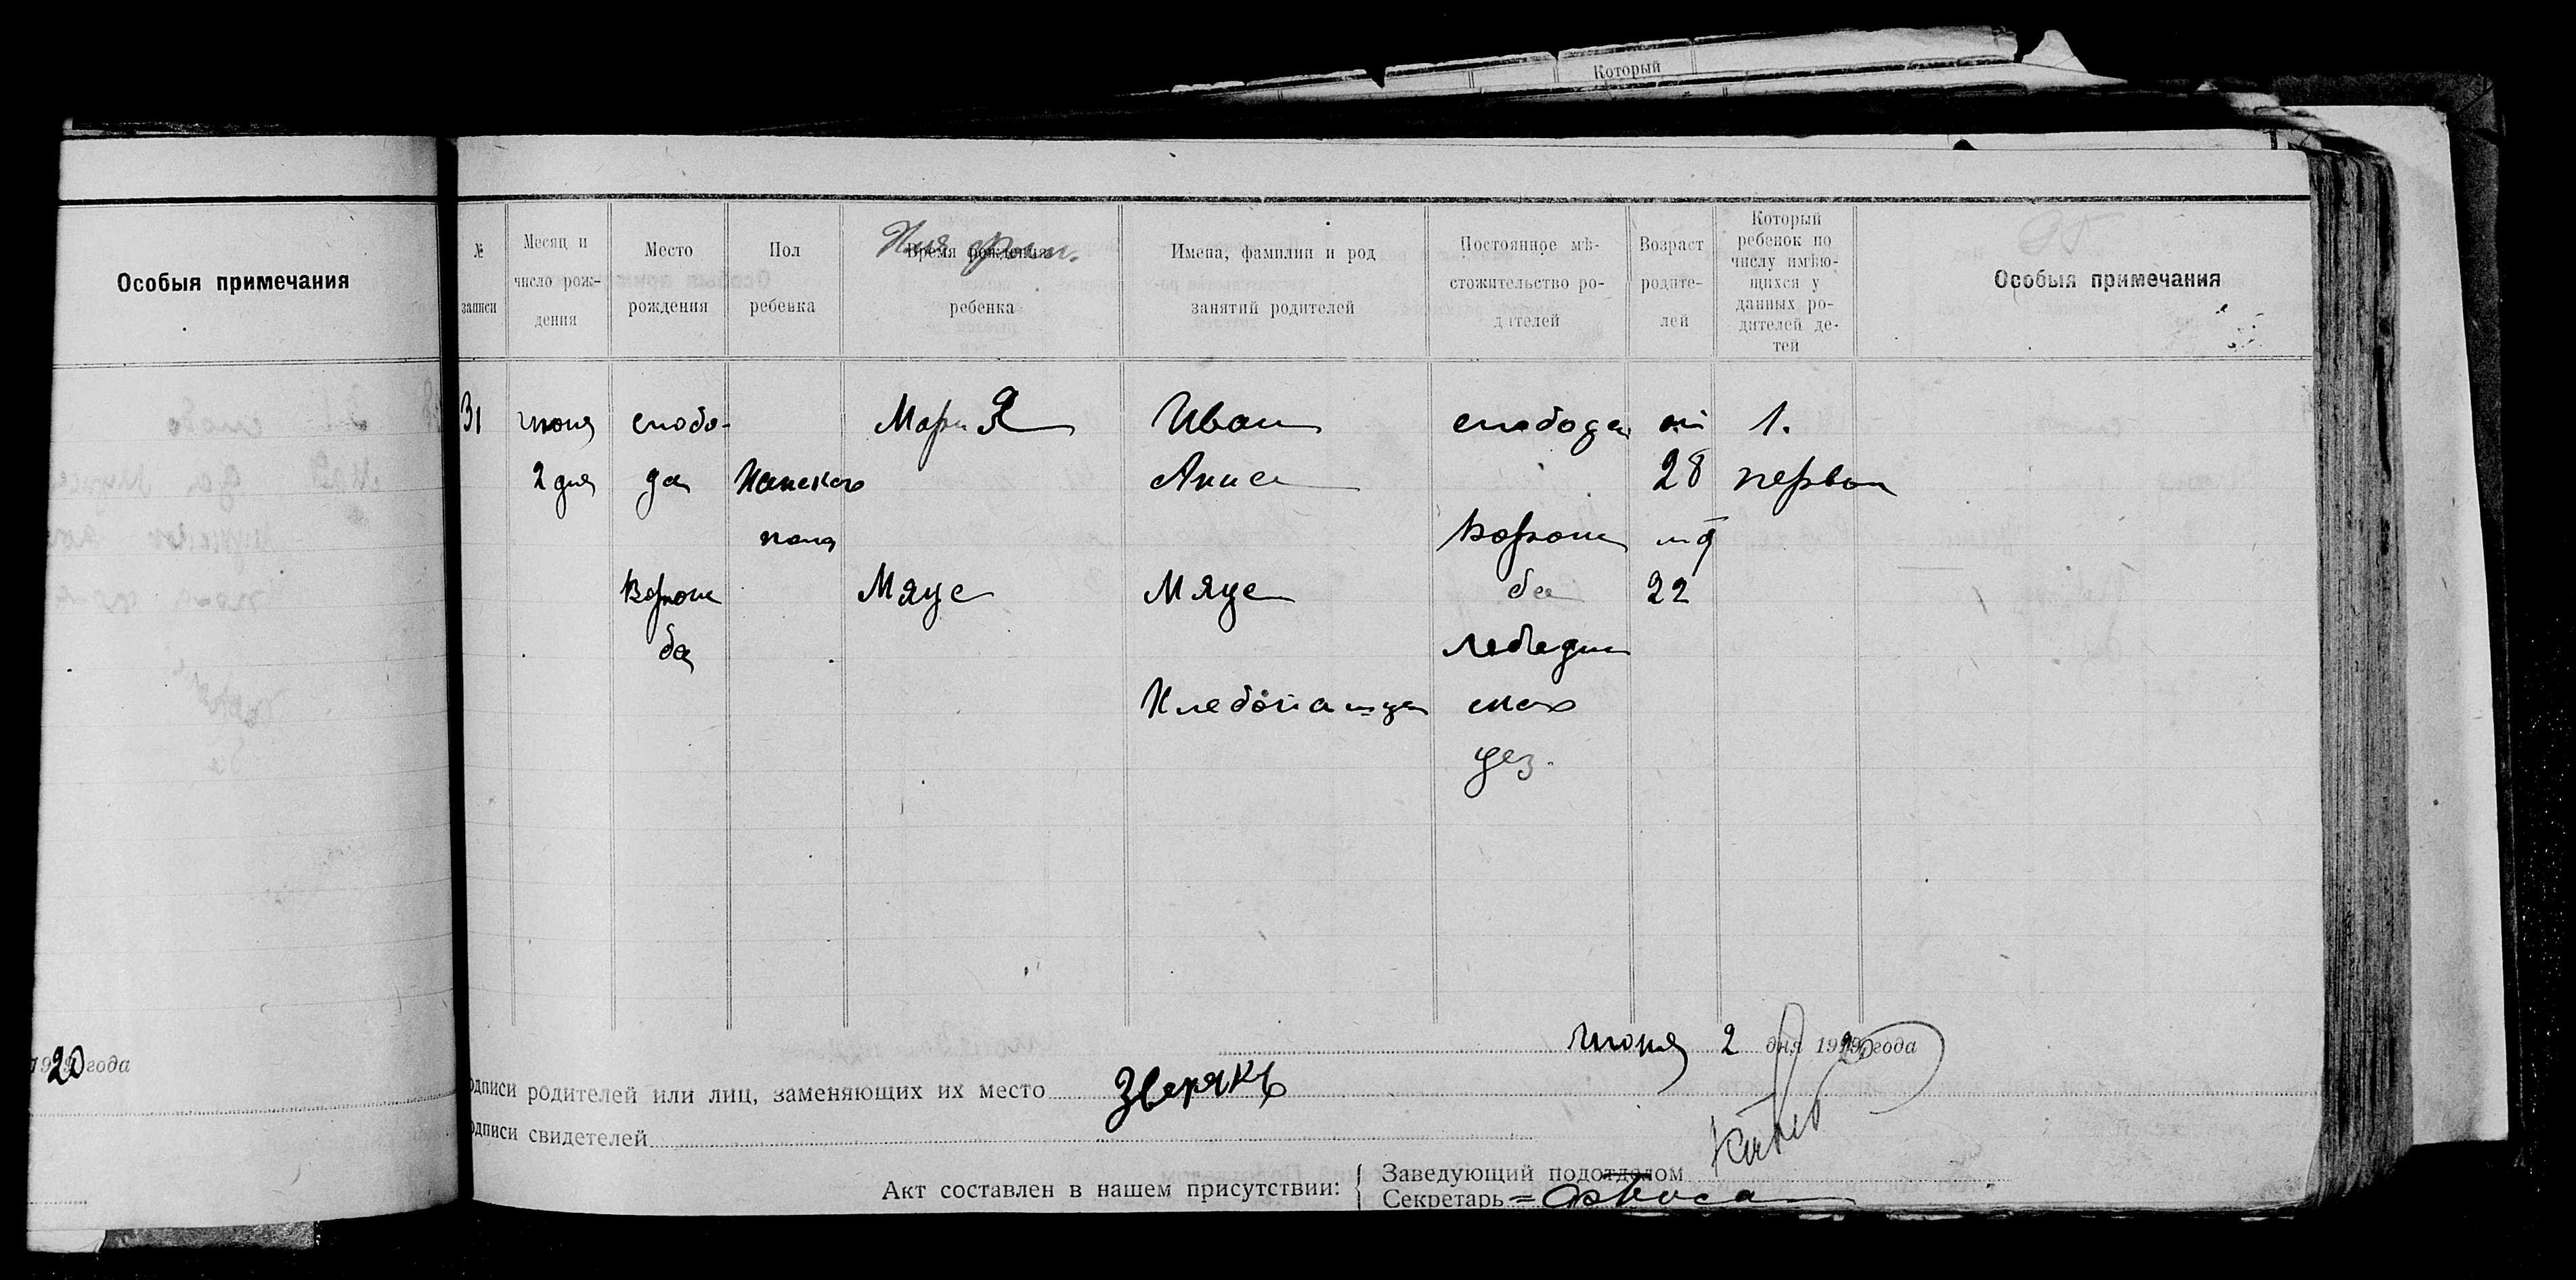 Который
Особыя примечания
20 года
№ записи
Месяц и число рож- дения
Место рождения
Пол ребенка
Время рождения ребенка
Имя
Имена, фамилии и род занятий родителей
Постоянное мѣ- стожительство ро- дителей
Возраст родите- лей
Который ребенок по числу имѣю- щихся у данных ро- дителей де- тей
Особыя примечания
31
июня
2 дня
слобо-
да
Ворож
ба
Женского
пола
Мария
Мяце
Иван
Анна
Мяце
Хлебопашца
слобода
Ворож
ба
Лебедин
ског
уез.
от
28
мт
22
1.
первой
Июня 2 дня 1920 года
одписи родителей или лиц, заменяющих их место Зверякъ
одписи свидетелей
Акт составлен в нашем присутствии:
Заведующий подотделом
Секретарь =